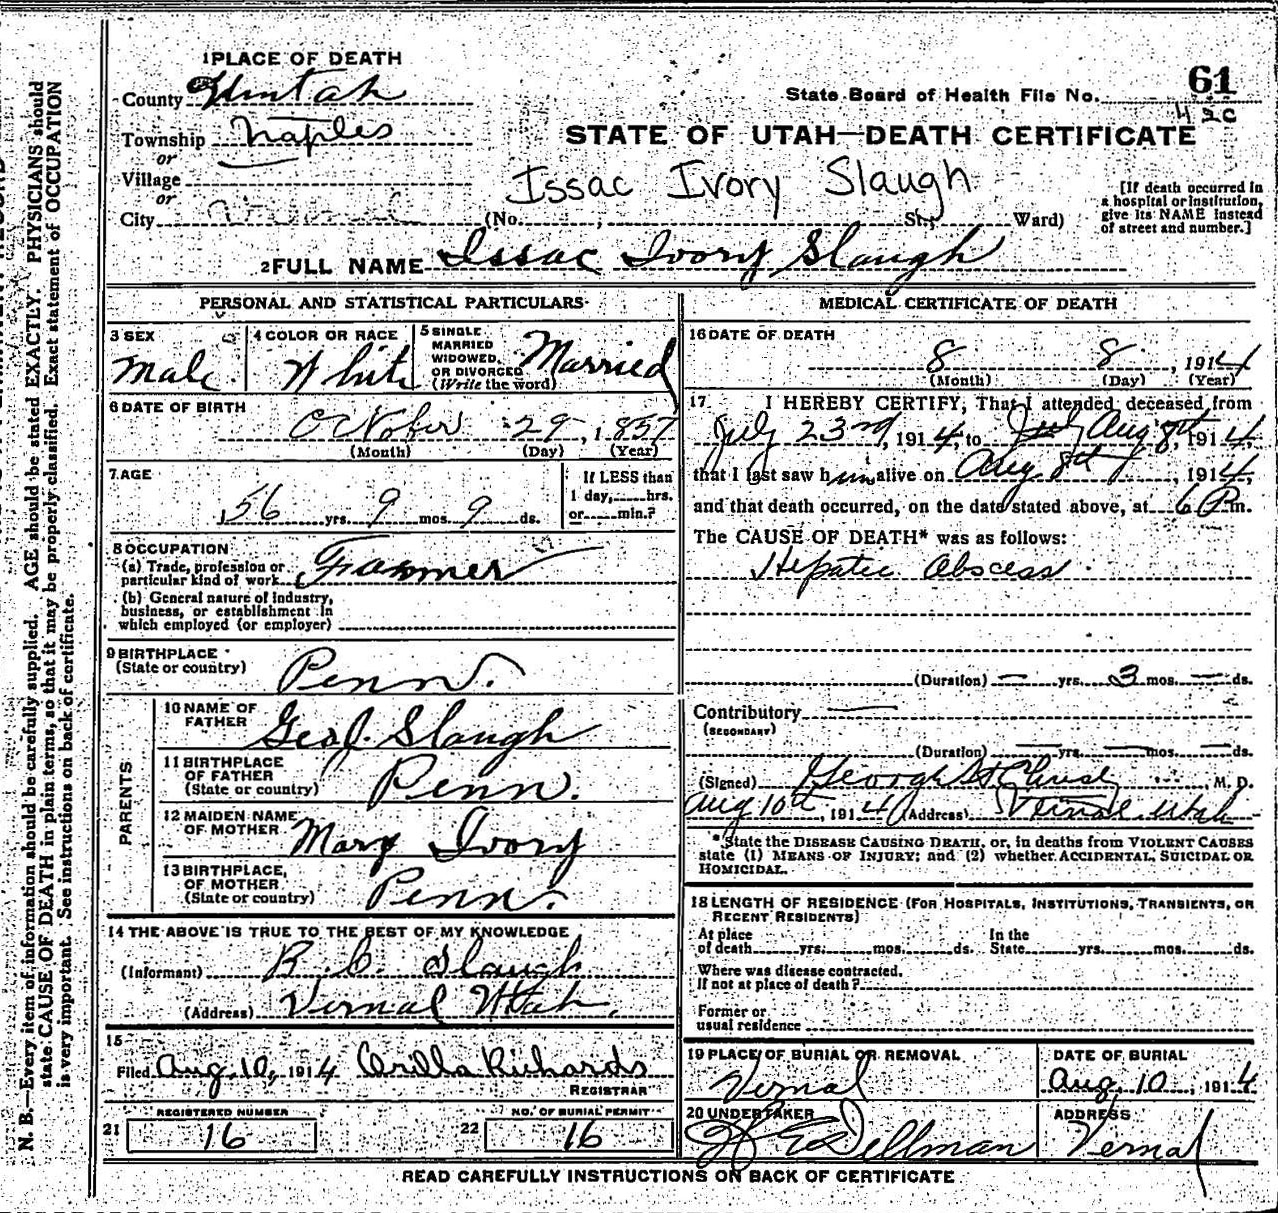 1 PLACE OF DEATH
County Uintah
State Board of Health File No. 61
Township Naples
or
Village
or
STATE OF UTAH—DEATH CERTIFICATE
Issac Ivory Slaugh
City (No. St., Ward)
[If death occurred in
a hospital or institution,
give its NAME instead
of street and number.]
2 FULL NAME Issac Ivory Slaugh
PERSONAL AND STATISTICAL PARTICULARS
3 SEX
Male
4 COLOR OR RACE
White
5 SINGLE
MARRIED
WIDOWED,
OR DIVORCED
(Write the word)
Married
6 DATE OF BIRTH
October 29, 1857
(Month) (Day) (Year)
7 AGE
56 yrs. 9 mos. 9 ds.
If LESS than
1 day, hrs.
or min.?
8 OCCUPATION
(a) Trade, profession or
particular kind of work Farmer
(b) General nature of industry,
business, or establishment in
which employed (or employer)
9 BIRTHPLACE
(State or country) Penn.
PARENTS
10 NAME OF
FATHER Slaugh
11 BIRTHPLACE
OF FATHER
(State or country) Penn.
12 MAIDEN NAME
OF MOTHER Mary Ivory
13 BIRTHPLACE,
OF MOTHER
(State or country) Penn.
14 THE ABOVE IS TRUE TO THE BEST OF MY KNOWLEDGE
(Informant) R. C. Slaugh
(Address) Vernal Utah.
15
Filed Aug. 10, 1914 Orilla Richards
REGISTRAR
REGISTERED NUMBER
21 16
NO. OF BURIAL PERMIT
22 16
MEDICAL CERTIFICATE OF DEATH
16 DATE OF DEATH
8 8, 1914
(Month) (Day) (Year)
17 I HEREBY CERTIFY, That I attended deceased from
July 23rd, 1914, to July Aug 8th, 1914,
that I last saw him alive on Aug. 8th, 1914,
and that death occurred, on the date stated above, at 6 P.m.
The CAUSE OF DEATH* was as follows:
Hepatic Abscess
(Duration) — yrs. 3 mos. — ds.
Contributory —
(SECONDARY)
(Duration) — yrs. — mos. — ds.
(Signed) George M. D.
Aug 10th, 1914 (Address) Vernal Utah
* State the DISEASE CAUSING DEATH, or, in deaths from VIOLENT CAUSES
state (1) MEANS OF INJURY; and (2) whether ACCIDENTAL, SUICIDAL OR
HOMICIDAL.
18 LENGTH OF RESIDENCE (FOR HOSPITALS, INSTITUTIONS, TRANSIENTS, OR
RECENT RESIDENTS)
At place
of death yrs. mos. ds.
In the
State yrs. mos. ds.
Where was disease contracted,
If not at place of death?
Former or
usual residence
19 PLACE OF BURIAL OR REMOVAL
Vernal
DATE OF BURIAL
Aug. 10, 1914
20 UNDERTAKER
Dillman
ADDRESS
Vernal
READ CAREFULLY INSTRUCTIONS ON BACK OF CERTIFICATE
N. B.—Every item of information should be carefully supplied. AGE should be stated EXACTLY. PHYSICIANS should
state CAUSE OF DEATH in plain terms, so that it may be properly classified. Exact statement of OCCUPATION
is very important. See instructions on back of certificate.